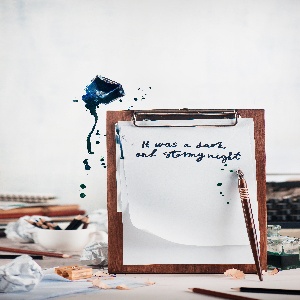 It was a dark,
and stormy night